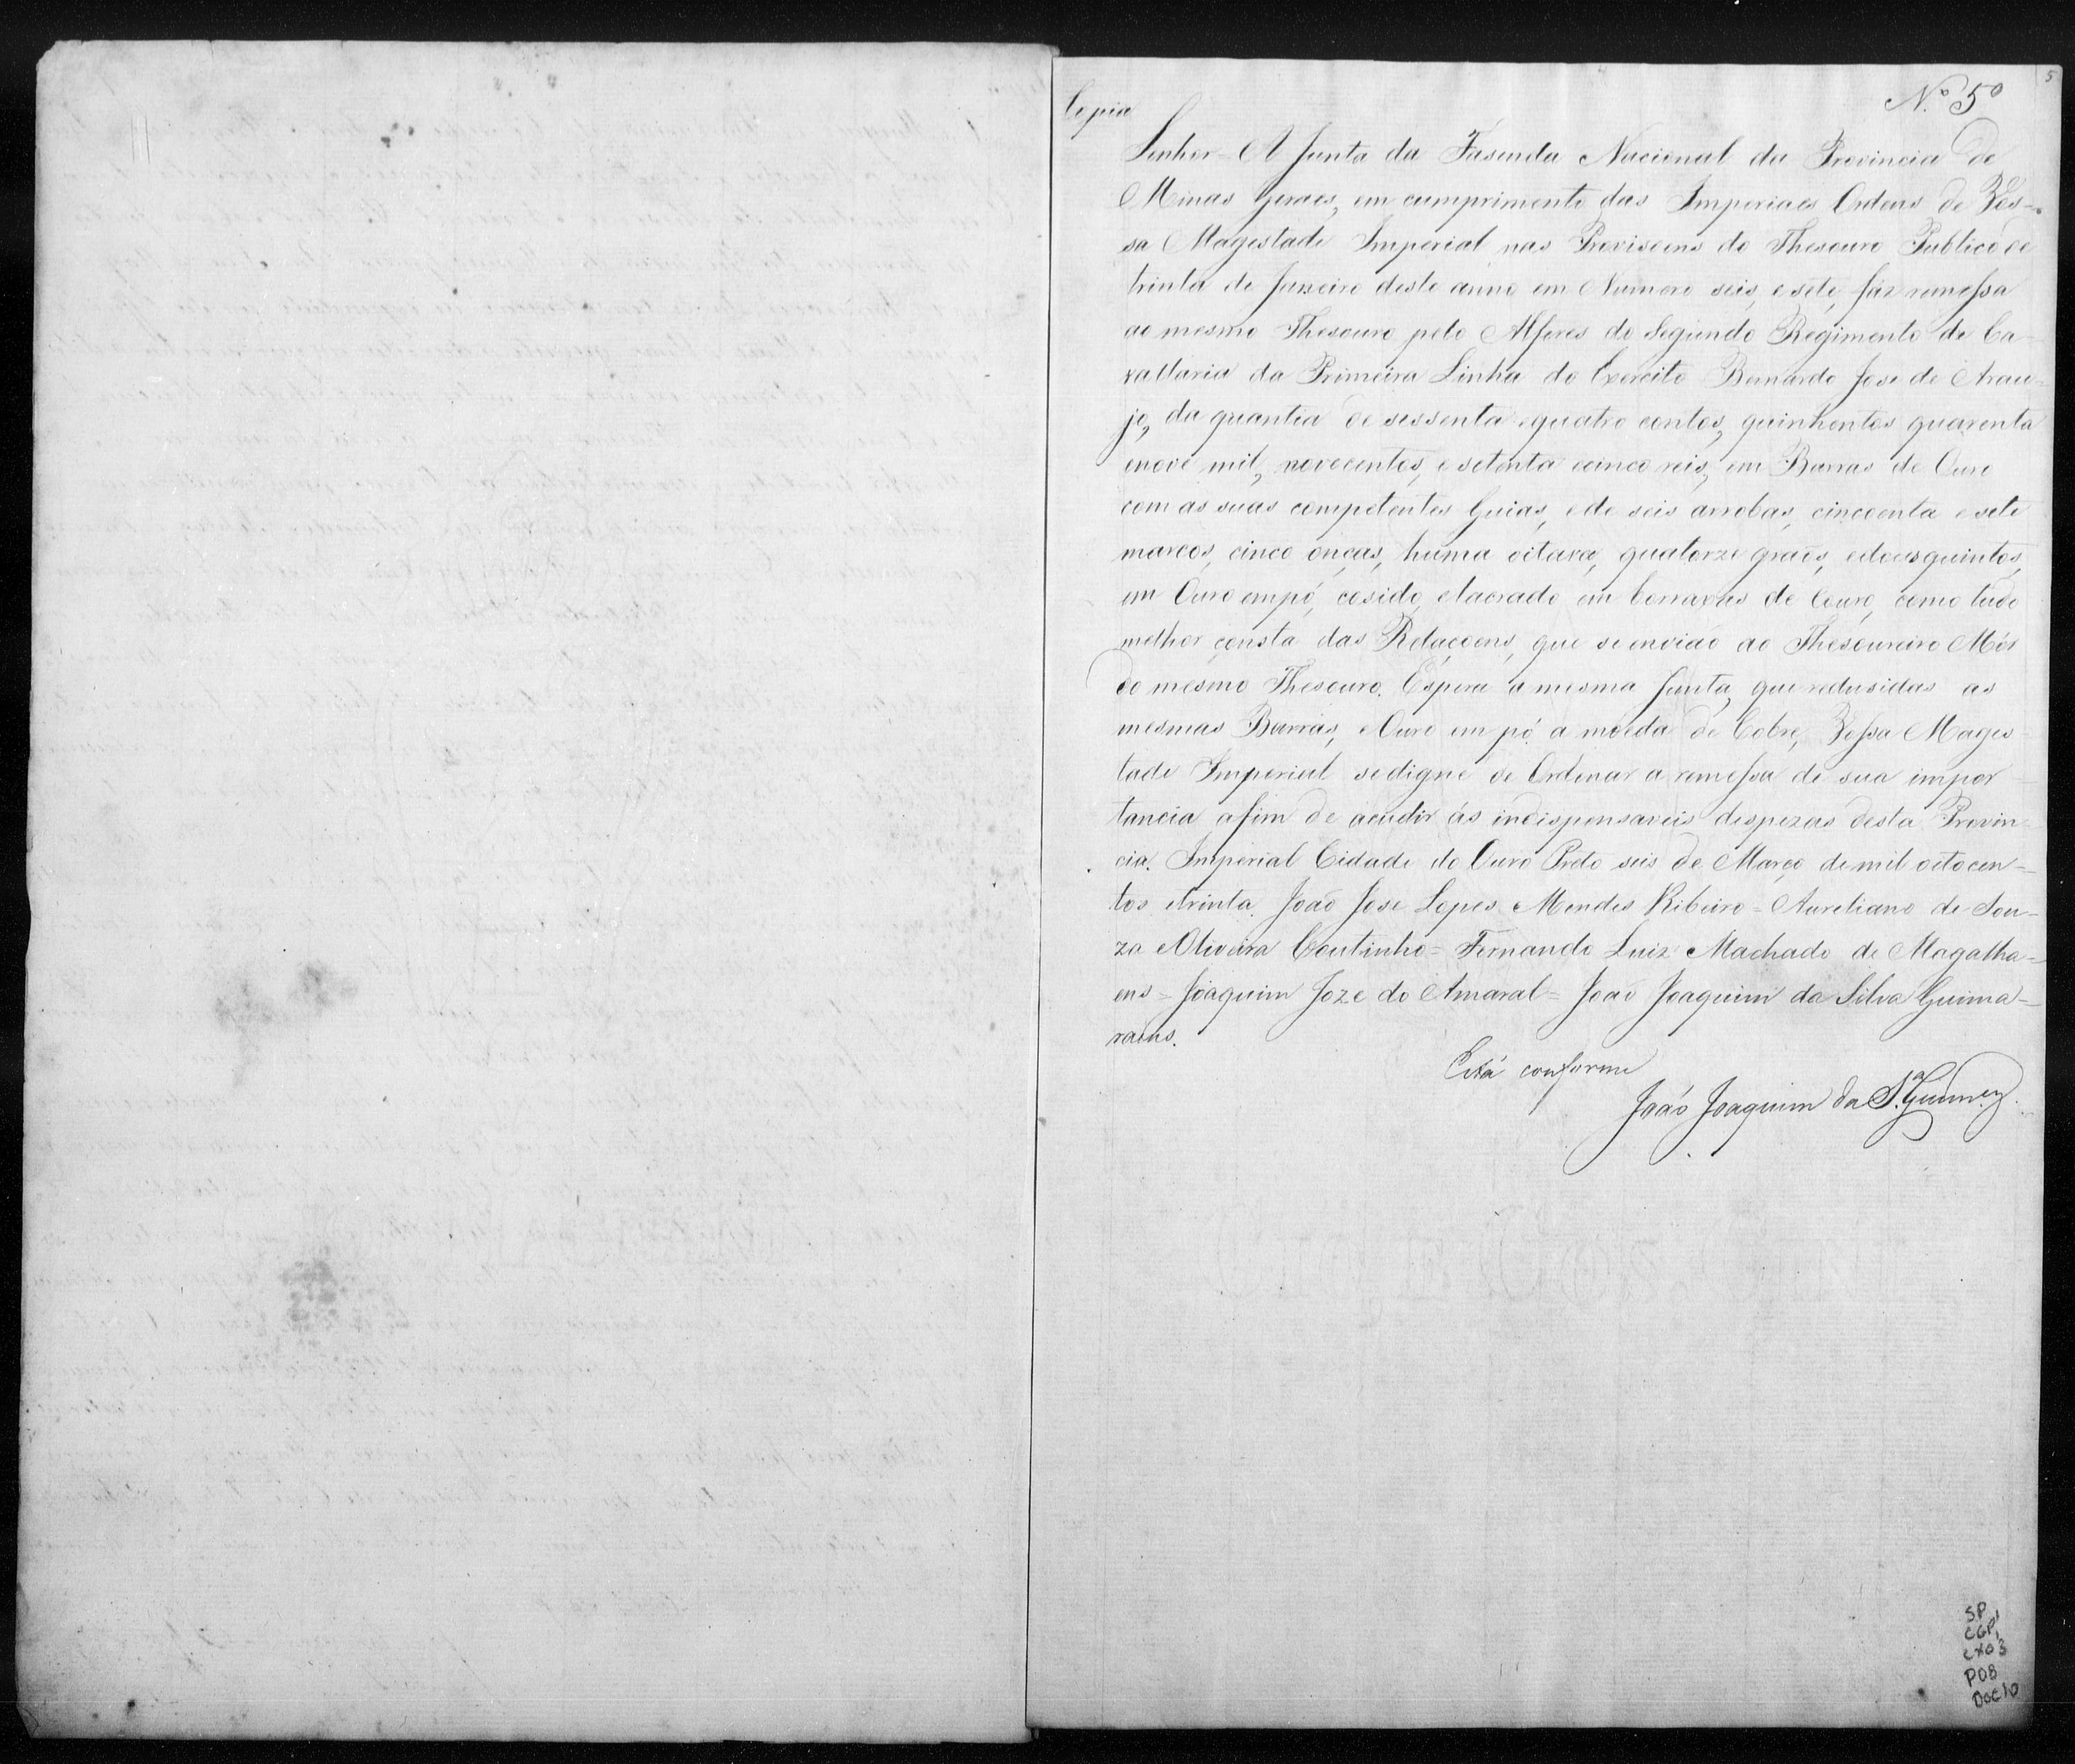 5
N.º 5º
Copia
Senhor = A Junta da Fasenda Nacional da Provincia de
Minas Geraes, em cumprimento das Imperiaes Ordens de Vos-
sa Magestade Imperial nas Provisoens do Thesouro Publico de
trinta de Janeiro deste anno em Numero seis, e sete, faz remessa
ao mesmo Thesouro pelo Alferes do Segundo Regimento de Ca-
vallaria da Primeira Linha do Exercito Bernardo Jose de Arau-
jo, da quantia de sessenta e quatro contos, quinhentos quarenta
enove mil, novecentos, e setenta ecinco reis, em Barras de Ouro
com as suas competentes Guias, e de seis arrobas, cincoenta e sete
marcos, cinco onças, huma oitava, quatorze graõs, edous quintos,
em Ouro empó, cosido, elacrado em borraxas de Couro, como tudo
melhor consta das Relaçoens, que se enviaõ ao Thesoureiro Mór
do mesmo Thesouro. Espera a mesma Junta, que redusidas as
mesmas Barras, e Ouro em pó a moeda de Cobre, Vossa Mages-
tade Imperial sedigne de Ordenar a remessa de sua impor-
tancia afim de acudir ás indispensaveis despezas desta Provin-
cia. Imperial Cidade do Ouro Preto seis de Março de mil oitocen-
tos etrinta. João Jose Lopes Mendes Ribeiro = Aureliano de Sou-
za e Oliveira Coutinho = Fernando Luiz Machado de Magalha-
ens = Joaquim Joze do Amaral = João Joaquim da Silva Guima-
raens.
Está conforme
João Joaquim da S.ª Guim.es
SP
CGP1
CX03
P08
Doc10